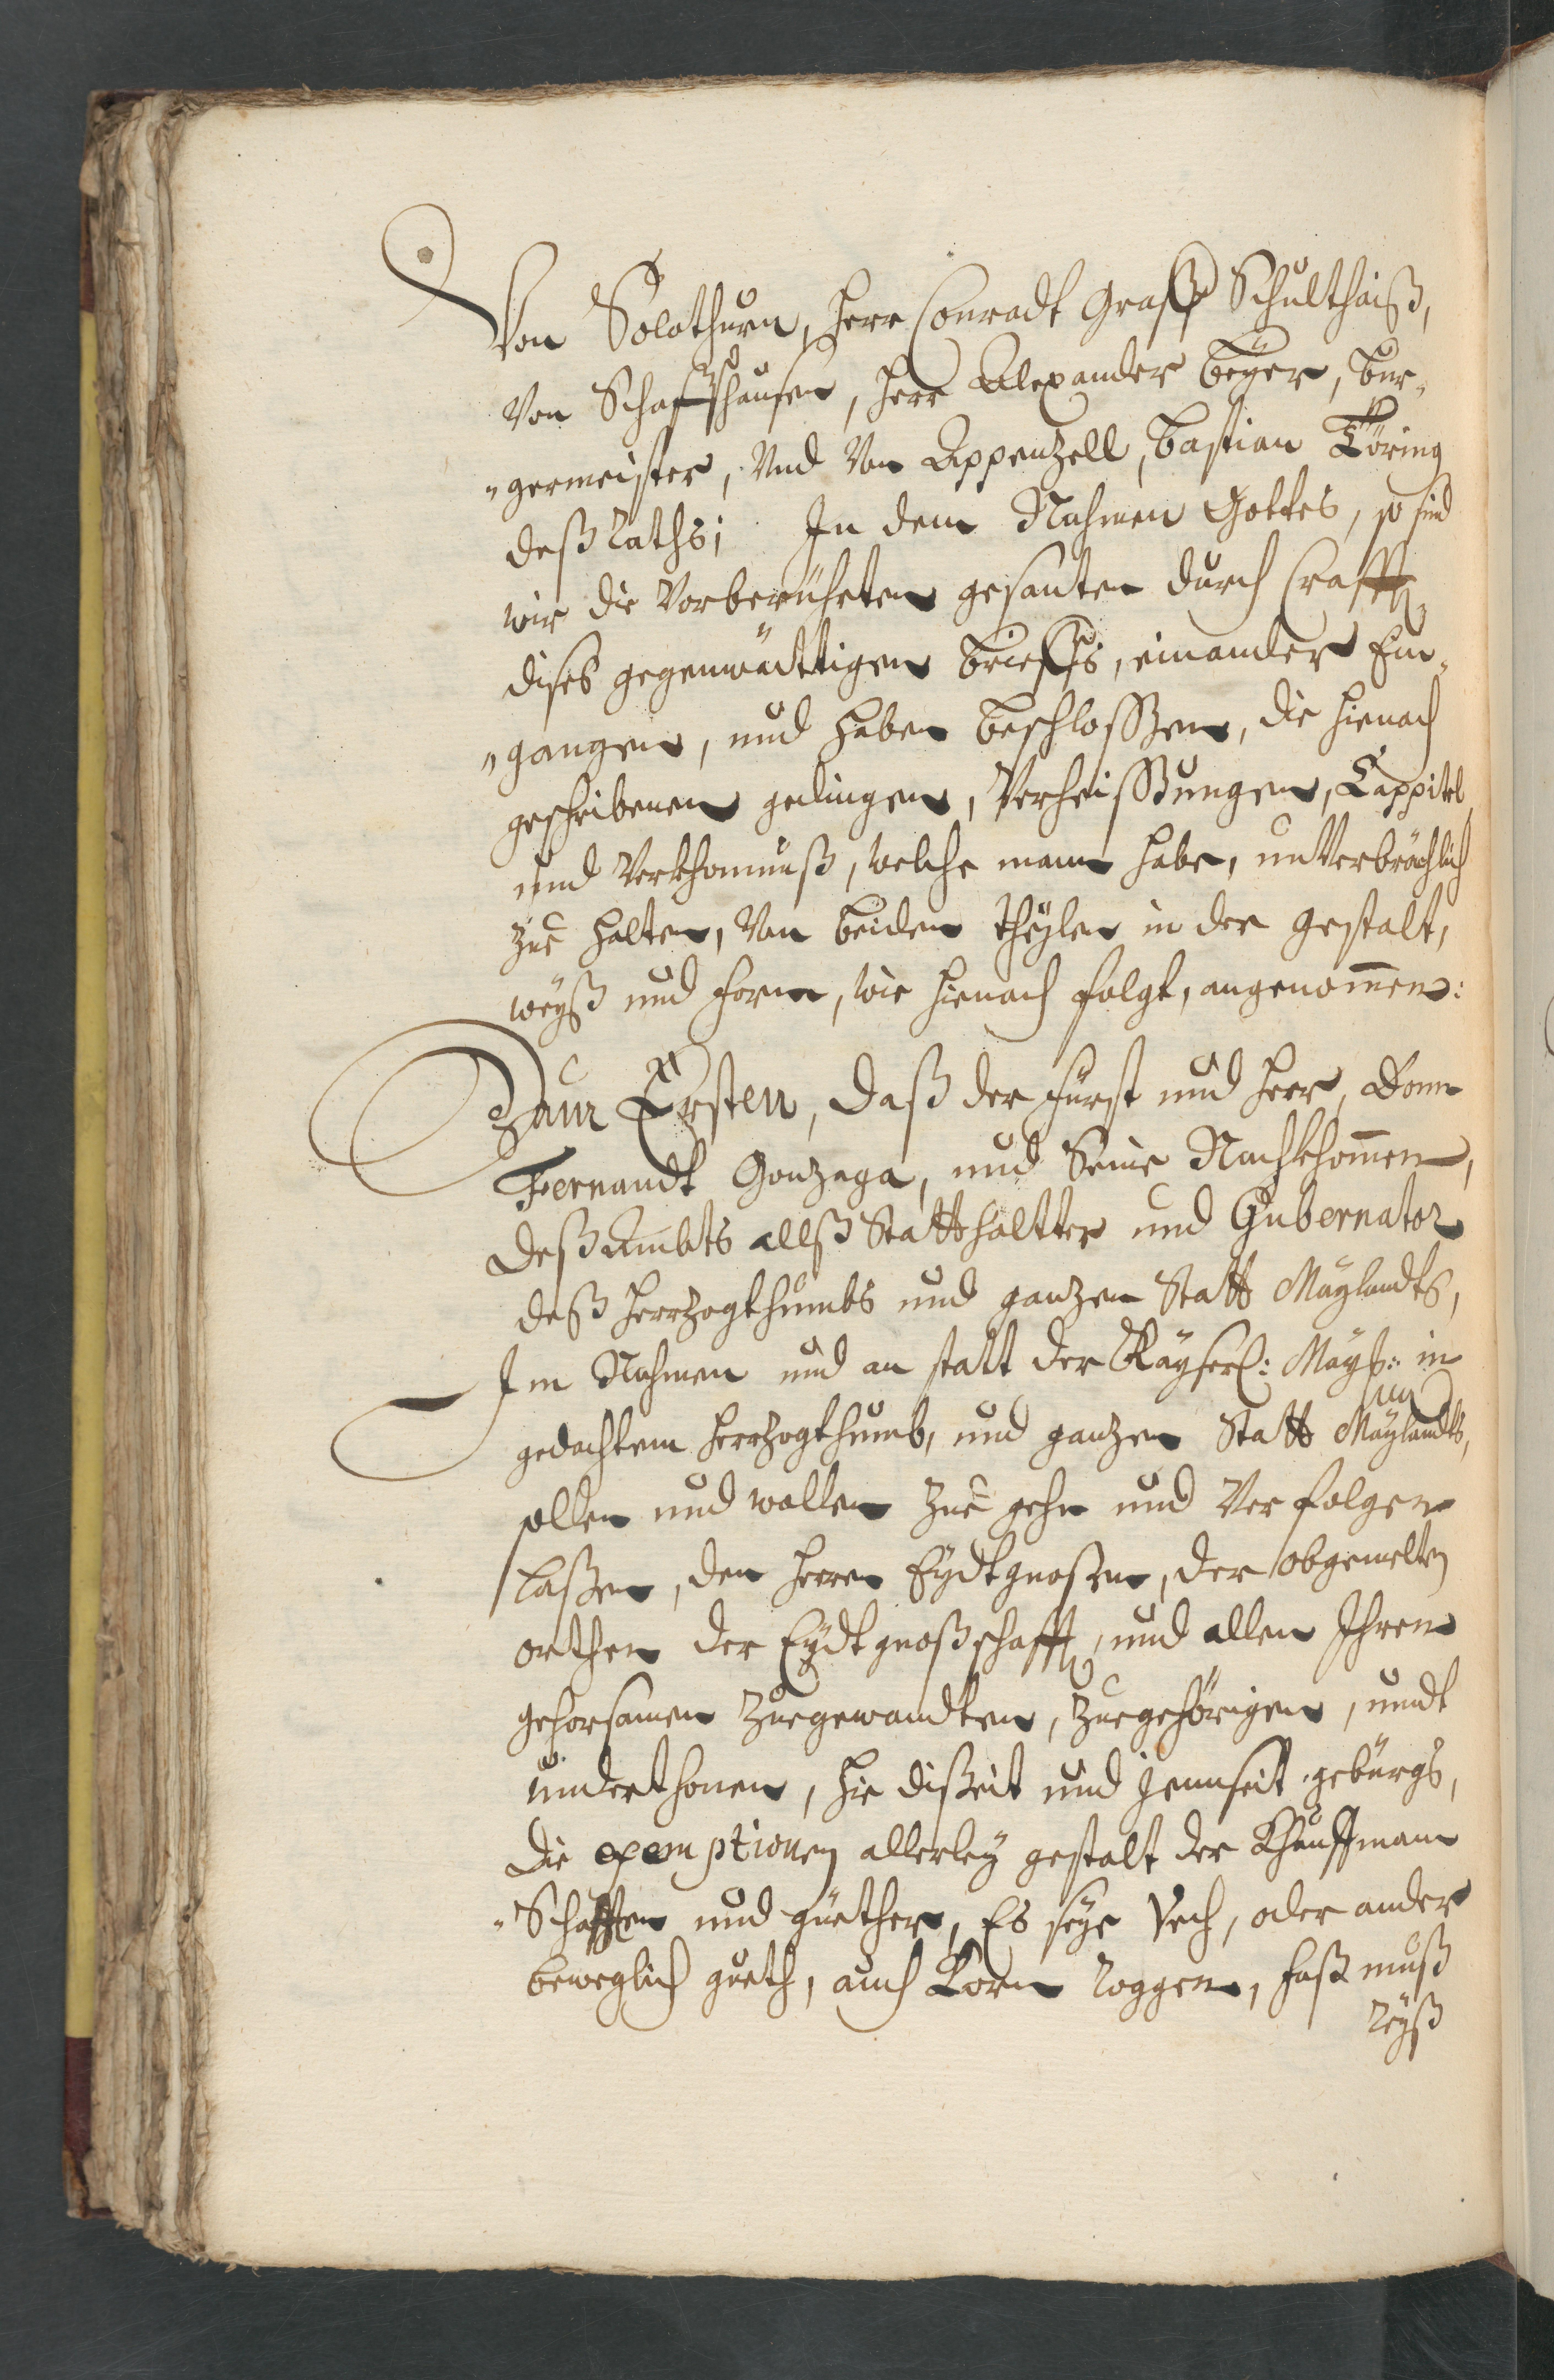 Von Solothurn, Herr Conradt Graff Schulthaiß,
Von Schaffhausen, Herr Alexander Beÿer, Bur-
germeister, Und Von Appenzell, Bastian Töring
deß Raths; In dem Nahmen Gottes, so sind
wir die Vorberührten gesanten durch Crafft
dises gegenwärttigen Brieffs, einander Ein-
gangen, und haben beschloßen, die hienach
geschribenen gedingen, Verheissungen, Cappitel,
und Verkhomnuß, welche mann habe, unVerbrächlich
zue halten, Von beiden theÿlen in der gestalt,
weÿß und Form, wie hienach folgt, angenom̄en:
Zum Ersten, daß der Fürst und Herr, Donn
Fernandt Gonzaga, und Seine Nachkhom̄en,
deß Ambts allß Statthaltter und Gubernator
deß Herrzogthumbs und ganzen Statt Maÿlandts,
Im Nahmen und an statt der Kaÿserl: Maÿt: in
gedachtem Herrzogthumb, und ganzen Statt Maÿlandts,
sollen und wollen zue gehn und Verfolgen
laßen, den Herren Eÿdtgnoßen, der obgemelten
orthen der Eÿdtgnoßschafft, und allen Ihren
gehorsamen Zuegewandten, zuegehörigen, undt
underthonen, hie dißeit und jennseit gebürgs,
die exemptionen allerleÿ gestalt der Khauffmann
Schafften und güether, Es seÿe Vech, oder ander
beweglich gueth, auch Korn Roggen, Faß muß
Reÿß